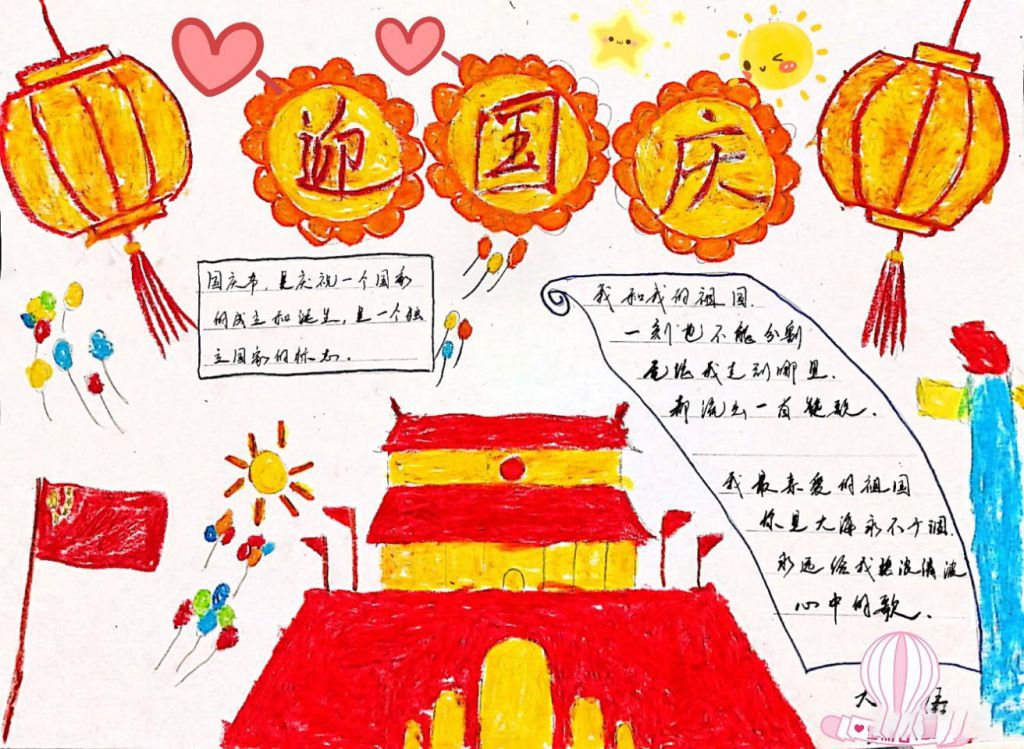 迎国庆
国庆节，是庆祝一个国家
的成立和诞生，是一个独
立国家的标志．
我和我的祖国．
一刻也不能分割
无论我走到哪里．
都流出一首赞歌．
我最亲爱的祖国
你是大海永不干涸．
永远给我碧浪清波
心中的歌．
大